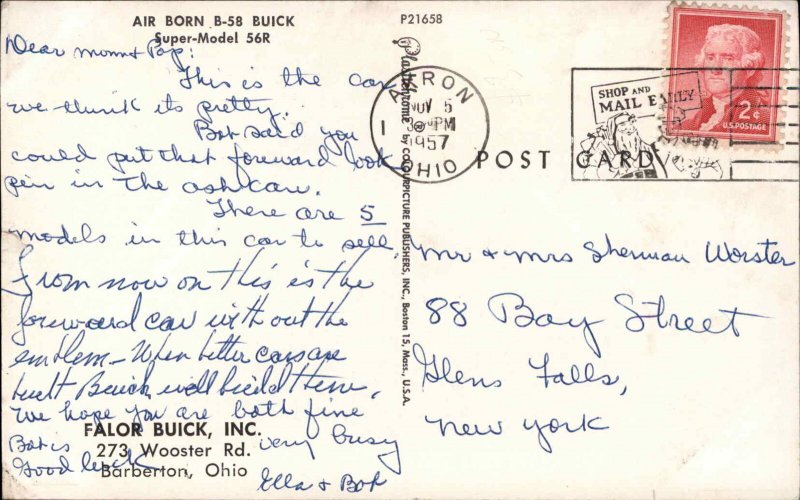 AIR BORN B-58 BUICK
Super-Model 56R
Dear Mom & Pop:
This is the car
we think its pretty.
Bob said you
could put that foreward look
pen in the ashcan.
There are 5
models in this car to sell.
From now on this is the
foreward car with out the
emblem - When better cars are
built Buick will build them.
We hope you are both fine
Bob is very busy
Good luck
Ella & Bob
FALOR BUICK, INC.
273 Wooster Rd.
Barberton, Ohio
P21658
Plastichrome by COLOURPICTURE PUBLISHERS, INC., Boston 15, Mass., U.S.A.
AKRON
NOV 5
PM
1957
OHIO
1
SHOP AND
MAIL EARLY
2¢
U.S. POSTAGE
POST CARD
Mr & Mrs Sherman Worster
88 Bay Street
Glens Falls,
New York